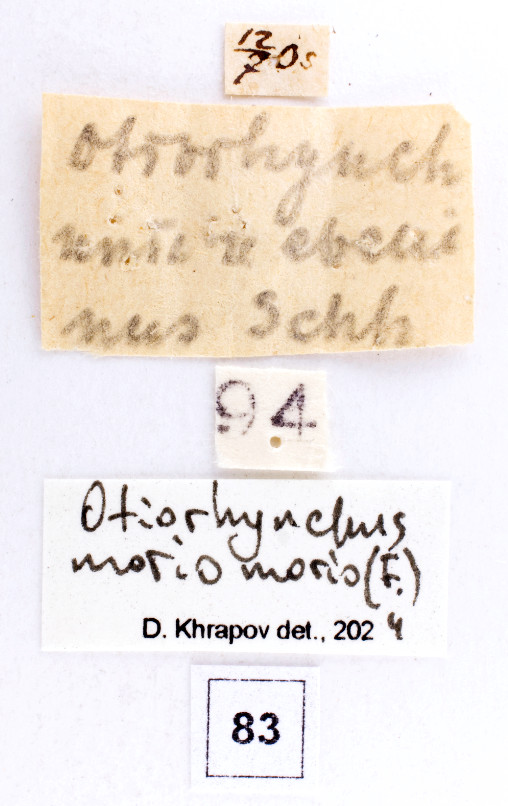 12/7 Os
Otiorhynch
ebeni
nus Schh
94
Otiorhynchus
morio morio (F.)
D. Khrapov det., 2024
83